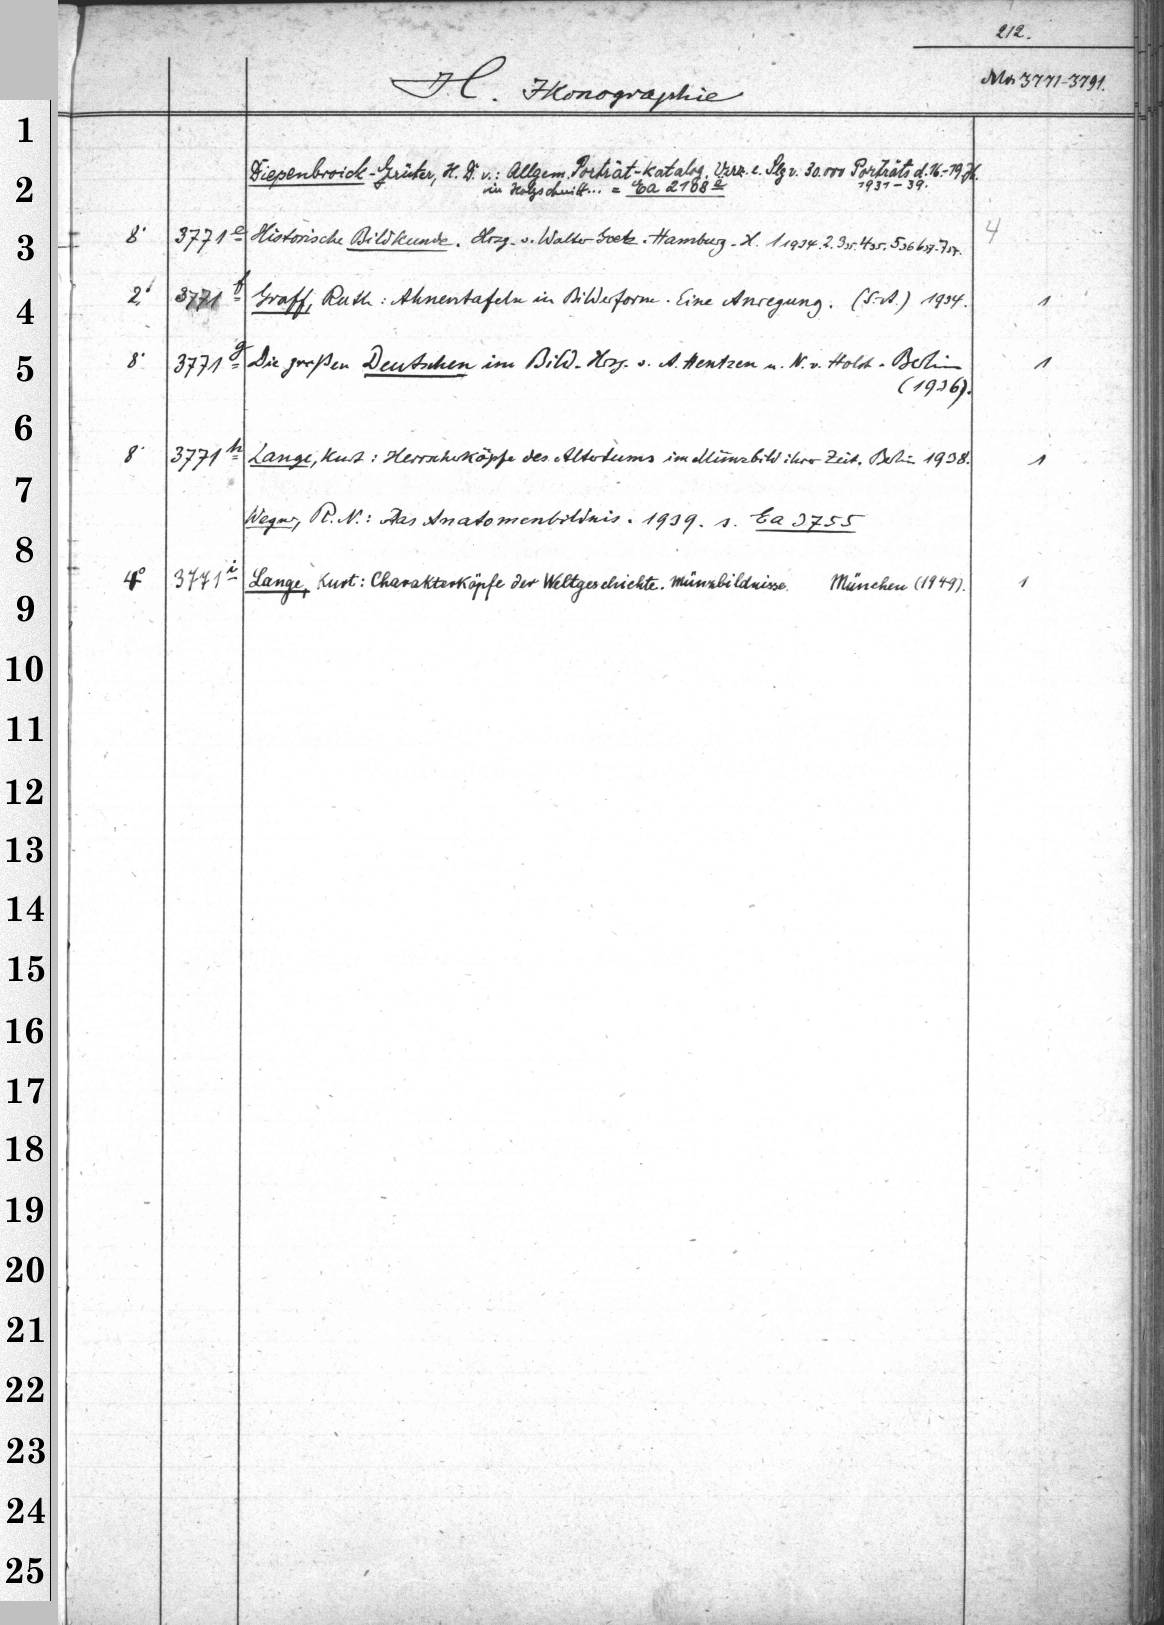 212.
No 3771-3791.
H. Ikonographie
1
Diepenbroick-Grüter, H. D. v.: Allgem. Porträt-Katalog. Verz. e. Slg v. 30.000 Porträts d. 16.-19. Jh.
2
in Holzschnitt... = Ea 2108 1931-39.
3
8° 3771 e Historische Bildkunde. Hrsg. v. Walter Goetz. Hamburg. 1 1934. 2. 3 35. 4 35. 5 36 6 37. 7 4
4
2° 3771 f Graff, Ruth: Ahnentafeln in Bilderform. Eine Anregung. (S.-A.) 1934. 1
5
8° 3771 g Die großen Deutschen im Bild. Hrsg. v. A. Hentzen u. N. v. Holst. Berlin 1
(1936).
6
8° 3771 h Lange, Kurt: Herrscherköpfe des Altertums im Münzbild ihrer Zeit. Berlin 1938. 1
7
Wegner, R. N.: Das Anatomenbildnis. 1939. s. Ea 3755
8
4° 3771 i Lange, Kurt: Charakterköpfe der Weltgeschichte. Münzbildnisse. München (1949). 1
9
10
11
12
13
14
15
16
17
18
19
20
21
22
23
24
25